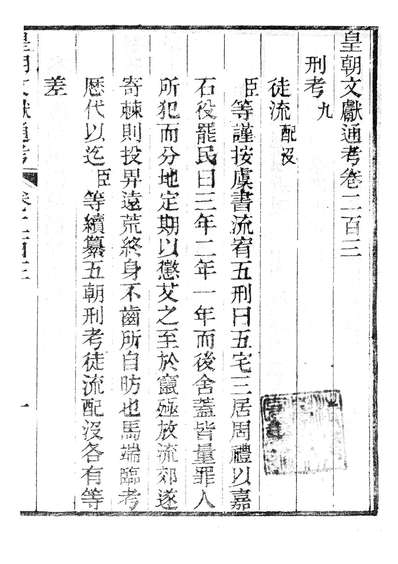 皇朝文獻通考卷二百三
刑考九
徒流配沒
臣等謹按虞書流宥五刑曰五宅三居周禮以嘉
石役罷民曰三年二年一年而後舍蓋皆量罪人
所犯而分地定期以懲艾之至於竄殛放流郊遂
寄棘則投畀遠荒終身不齒所自昉也馬端臨考
歷代以迄臣等續纂五朝刑考徒流配沒各有等
差
皇朝文獻通考 卷二百三 一